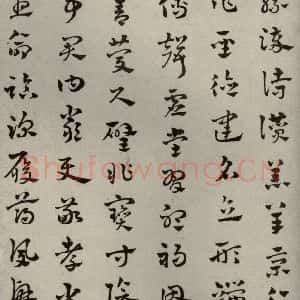 絲染詩讚羔羊景行
作聖德建名立形端
傳聲虛堂習聽禍因
善慶尺璧非寶寸陰
事君曰嚴與敬孝當
盡命臨深履薄夙興
Shufawang.CN